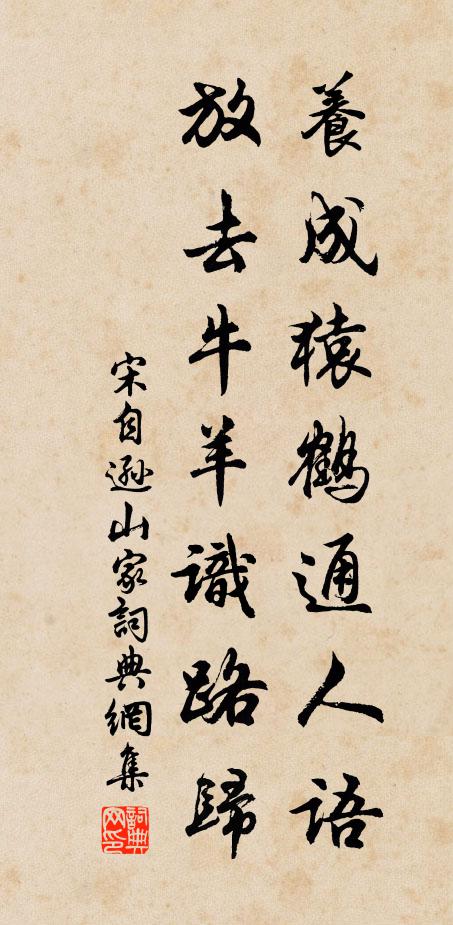 養成猿鶴通人語
放去牛羊識路歸
宋自遜山家詞典網集
詞典網印